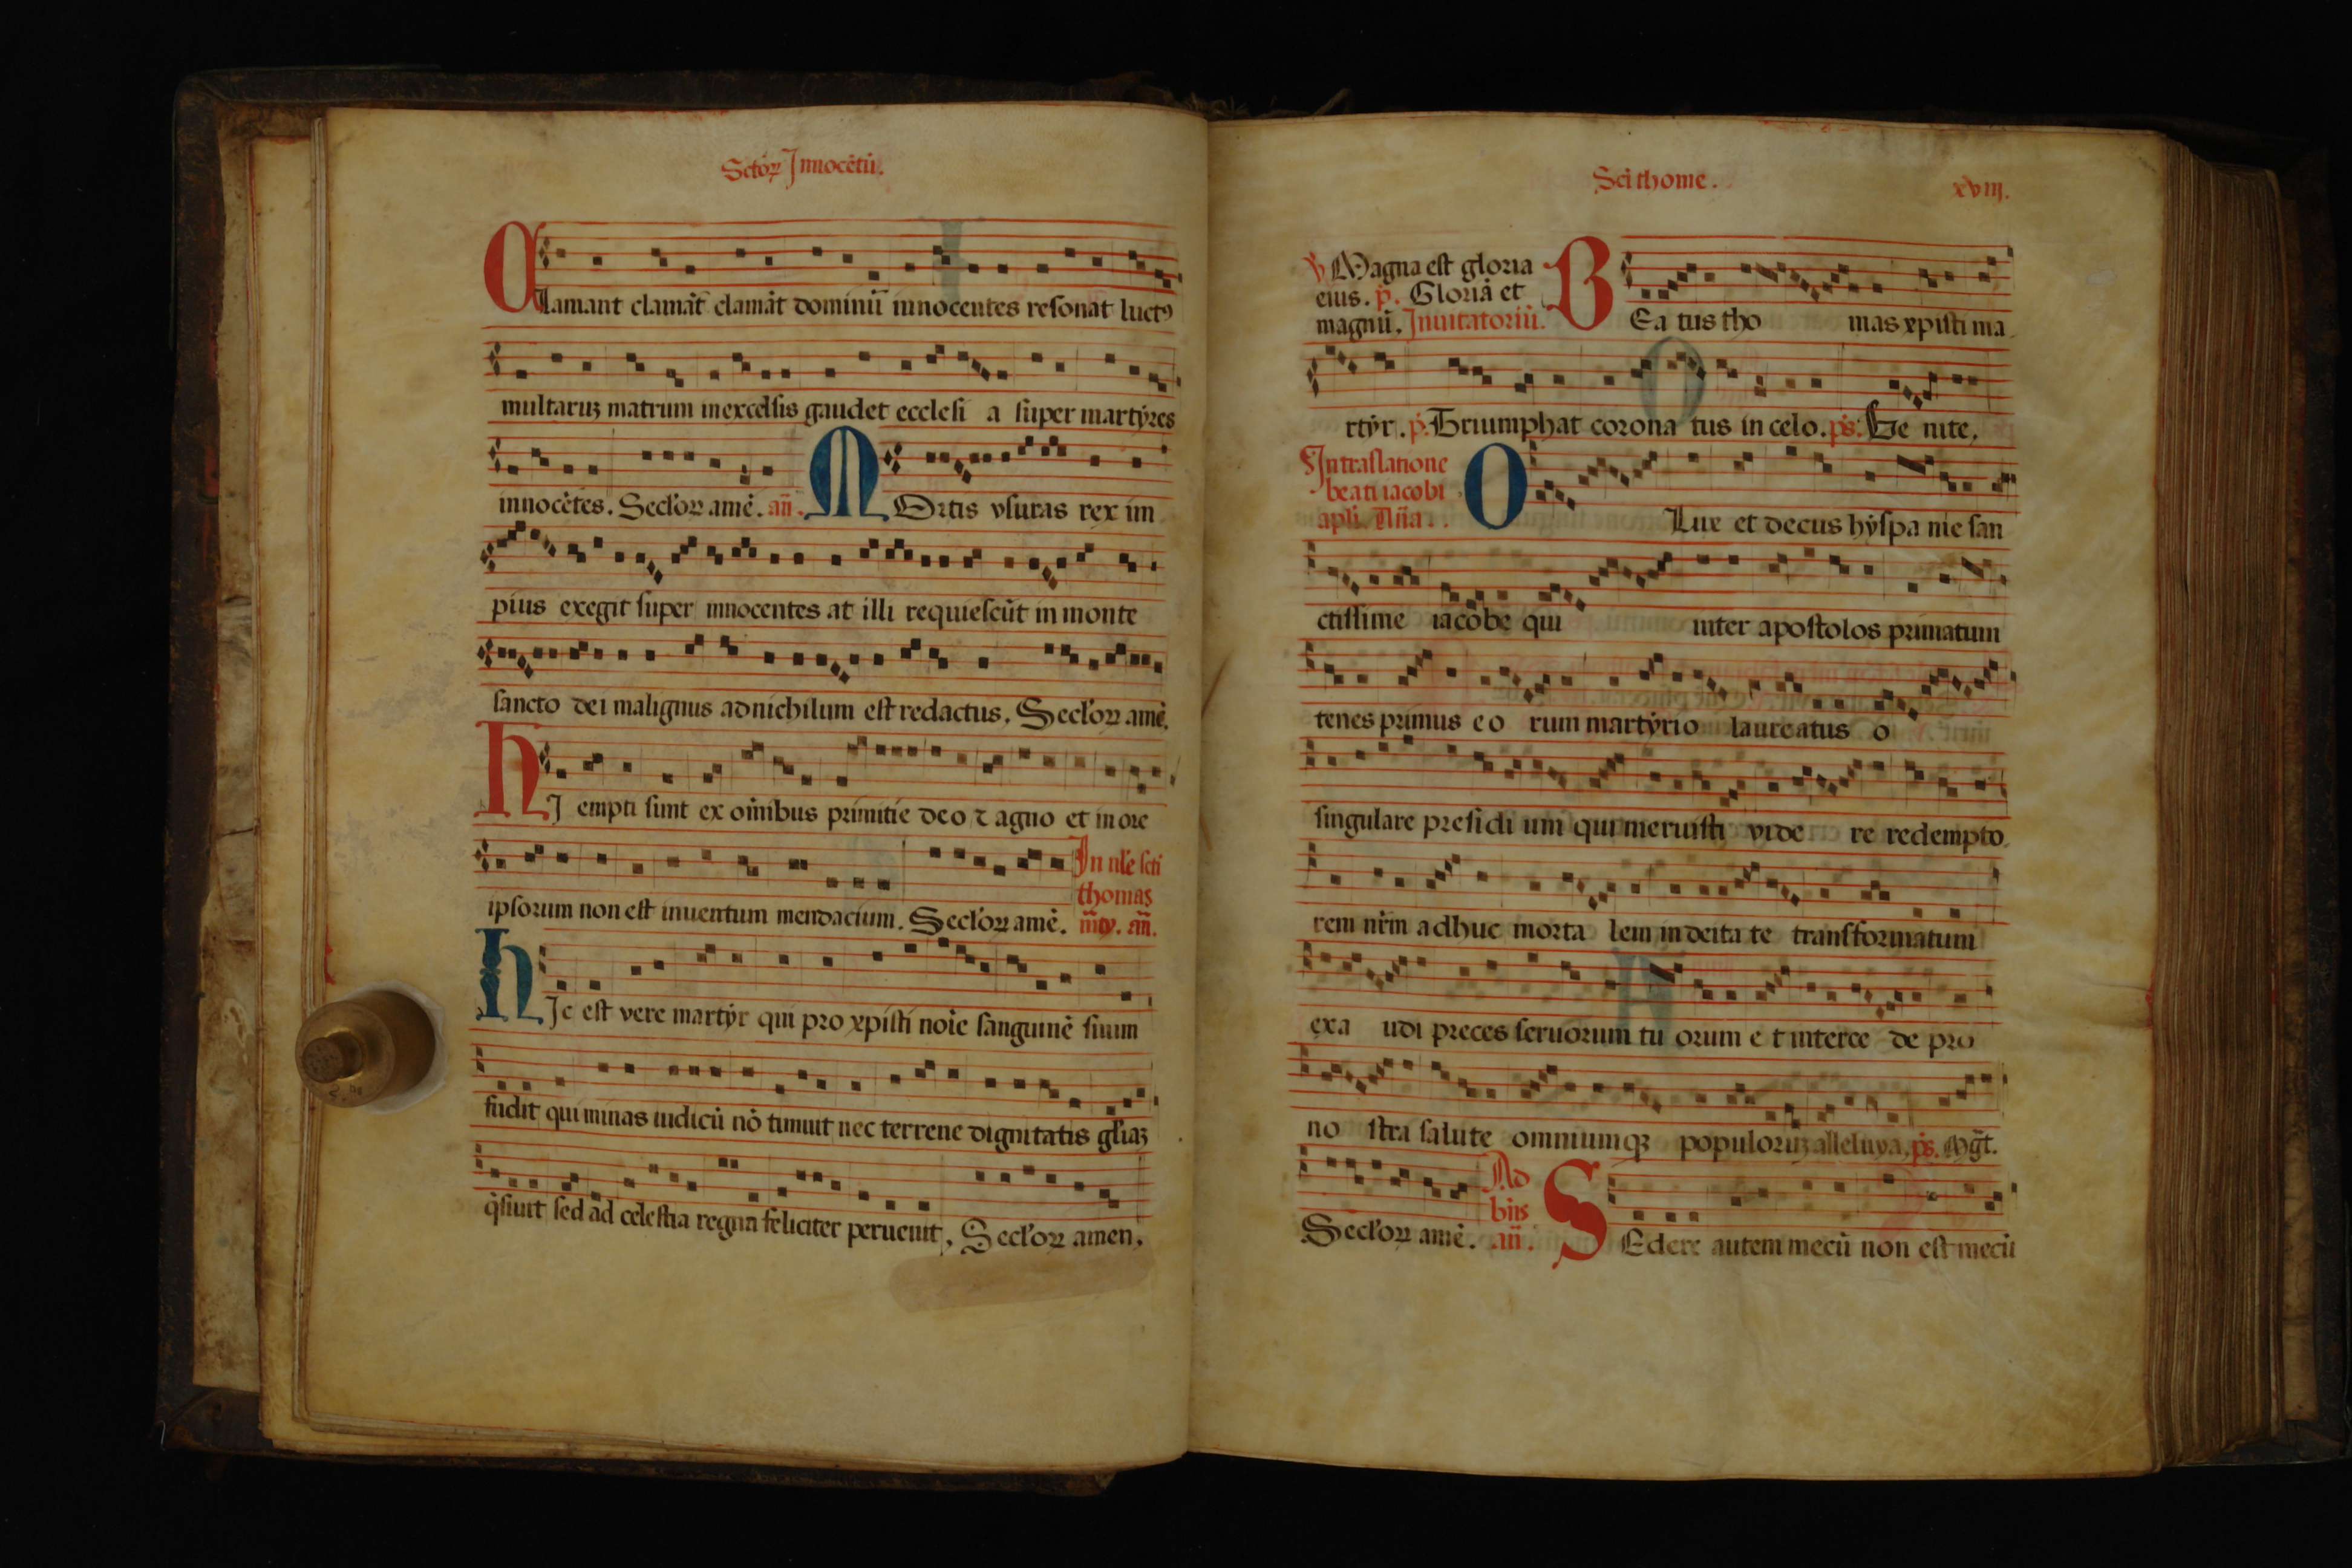 Sctoꝝ Innocētū.
Clamant clamāt clamāt dominū innocentes reſonat luctꝰ
multaruꝫ matrum in excelſis gaudet eccleſi a ſuper martẏres
innocētes. Secl'oꝝ amē. añ. MOrtis vſuras rex im
pius exegit ſuper innocentes at illi requieſcūt in monte
ſancto dei malignus ad nichilum eſt redactus. Secl'oꝝ amē.
HJ empti ſunt ex oīnibus primitie deo ⁊ agno et in ore
In nl'e ſcti
thomas
ipſorum non eſt inuentum mendacium. Secl'oꝝ amē. añ.
HJc eſt vere martẏr qui pro xp̄iſti noīe ſanguinē ſuum
fudit qui minas iudicū nō timuit nec terrene dignitatis gl'iaꝫ
q̇ſiuit ſed ad celeſtia regna feliciter peruenit, Secl'oꝝ amen.
Sci thome. xviij.
℣ Magna eſt gloria
eius. p̄. Gloriā et
magnū. Inuitatoriū. BEa tus tho mas xpiſti ma
rtẏr. p̄. Triumphat corona tus in celo. pſ. Ve nite,
In traſlatione
beati iacobi
apl'i. Añā. O Lux et decus hẏſpa nie ſan
ctiſſime iacobe qui inter apoſtolos primatum
tenes primus eo rum martẏrio laureatus o
ſingulare preſidi um qui meruiſti vide re redempto
rem nr̄m adhuc morta lem in deita te tranſformatum
exa udi preces ſeruorum tu orum e t interce de pro
no ſtra ſalute omniumqꝫ populoruꝫ alleluya, pſ. Mḡt.
Ad
bñs
Secl'oꝝ amē. añ. SEdere autem mecū non eſt mecū